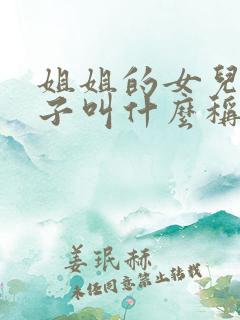 姐姐的女兒
子叫什麼稱
姜珉赫
未任同意禁止转载